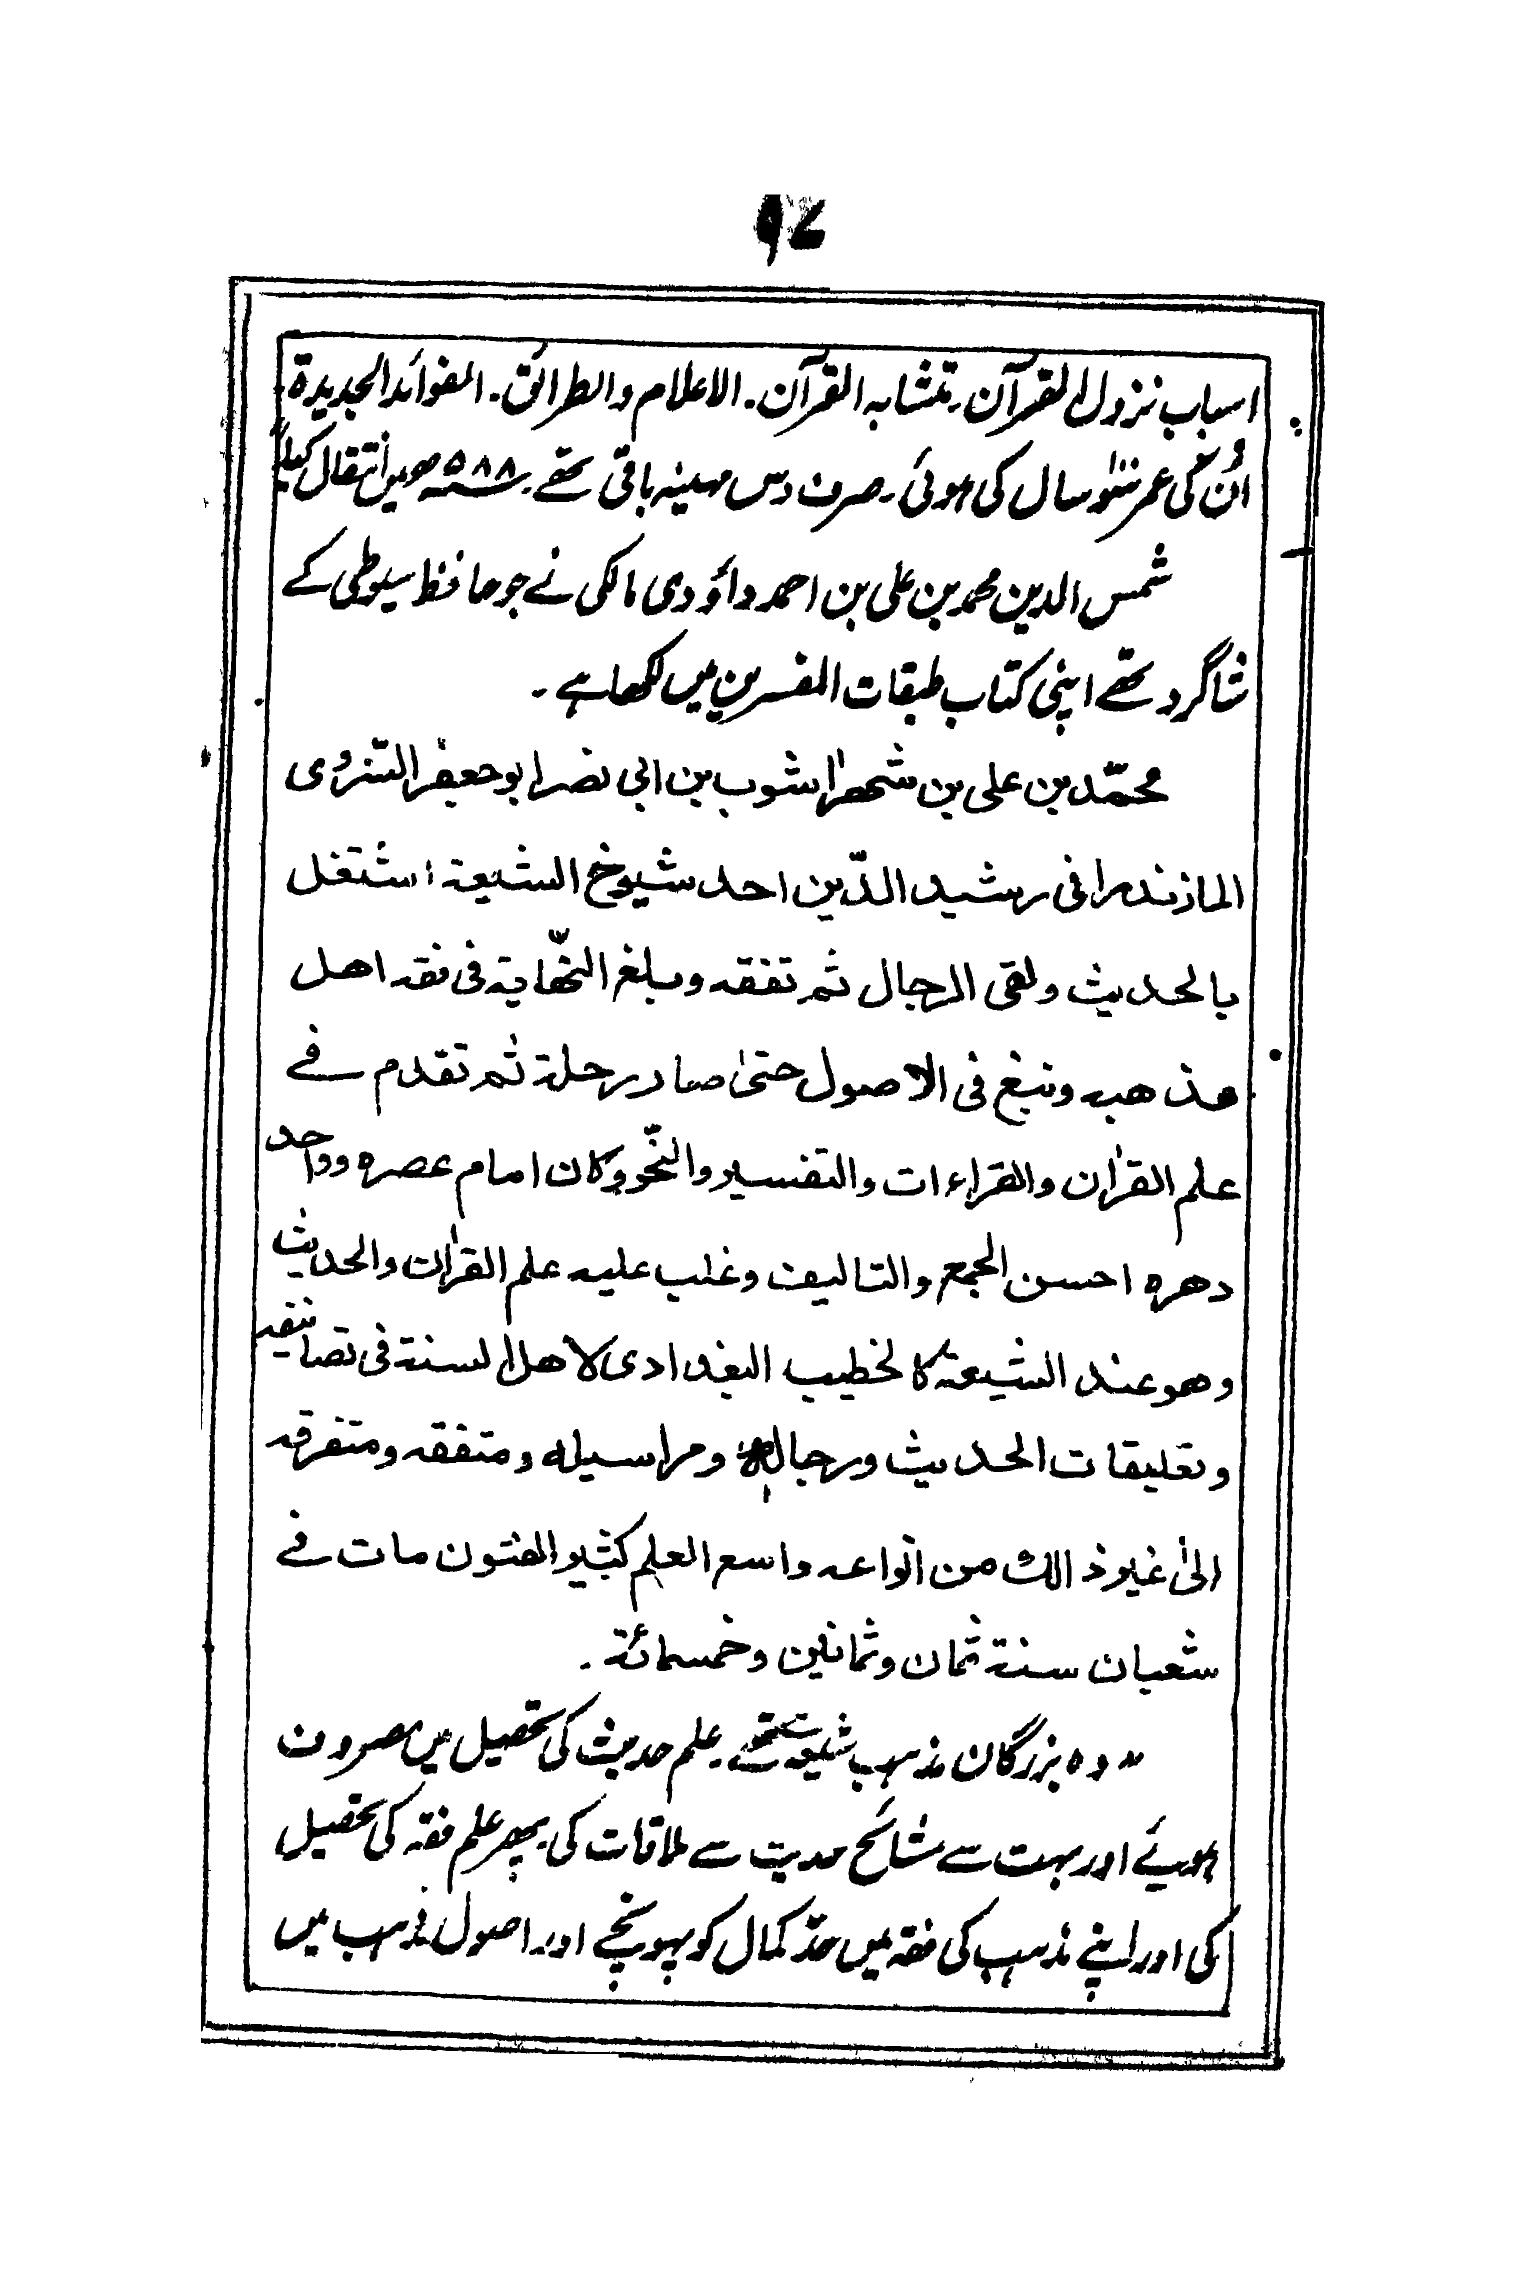 ۹۷
اسباب نزول القرآن۔ متشابہ القرآن۔ الاعلام والطرائق۔ الفوائد الجدیدة۔
اُن کی عمر سَو سال کی ہوئی۔ صرف دس مہینہ باقی تھے۔ ۵۸۸ھ میں انتقال کیا۔
شمس الدین محمد بن علی بن احمد داؤدی مالکی نے جو حافظ سیوطی کے
شاگرد تھے اپنی کتاب طبقات المفسرین میں لکھا ہے۔
محمّد بن علی بن شھراٰشوب بن ابی نصر ابو جعفر السّروی
الماذندرانی رشید الدّین احد شیوخ الشیعة اشتغل
بالحدیث ولقی الرجال ثم تفقه وبلغ النّھایة فی فقه اھل
مذھبه ونبغ فی الاصول حتیٰ صار رحلة ثم تقدم فے
علم القراٰن والقراءات والتفسیر والنّحو وکان امام عصره وواحد
دھره احسن الجمع والتالیف وغلب علیه علم القراٰن والحدیث
وھو عند الشیعة کالخطیب البغدادی لاھل السنة فی تصانیفه
وتعلیقات الحدیث ورجاله ومراسیله ومتفقه ومتفرقه
الیٰ غیر ذالک من انواعه واسع العلم کثیر الفنون مات فے
شعبان سنة ثمان وثمانین وخمسمائة۔
”وہ بزرگان مذہب شیعہ سے تھے۔ علم حدیث کی تحصیل میں مصروف
ہوئے اور بہت سے مشائخ حدیث سے ملاقات کی۔ پھر علم فقہ کی تحصیل
کی اور اپنے مذہب کی فقہ میں حدّ کمال کو پہونچے اور اصول مذہب میں